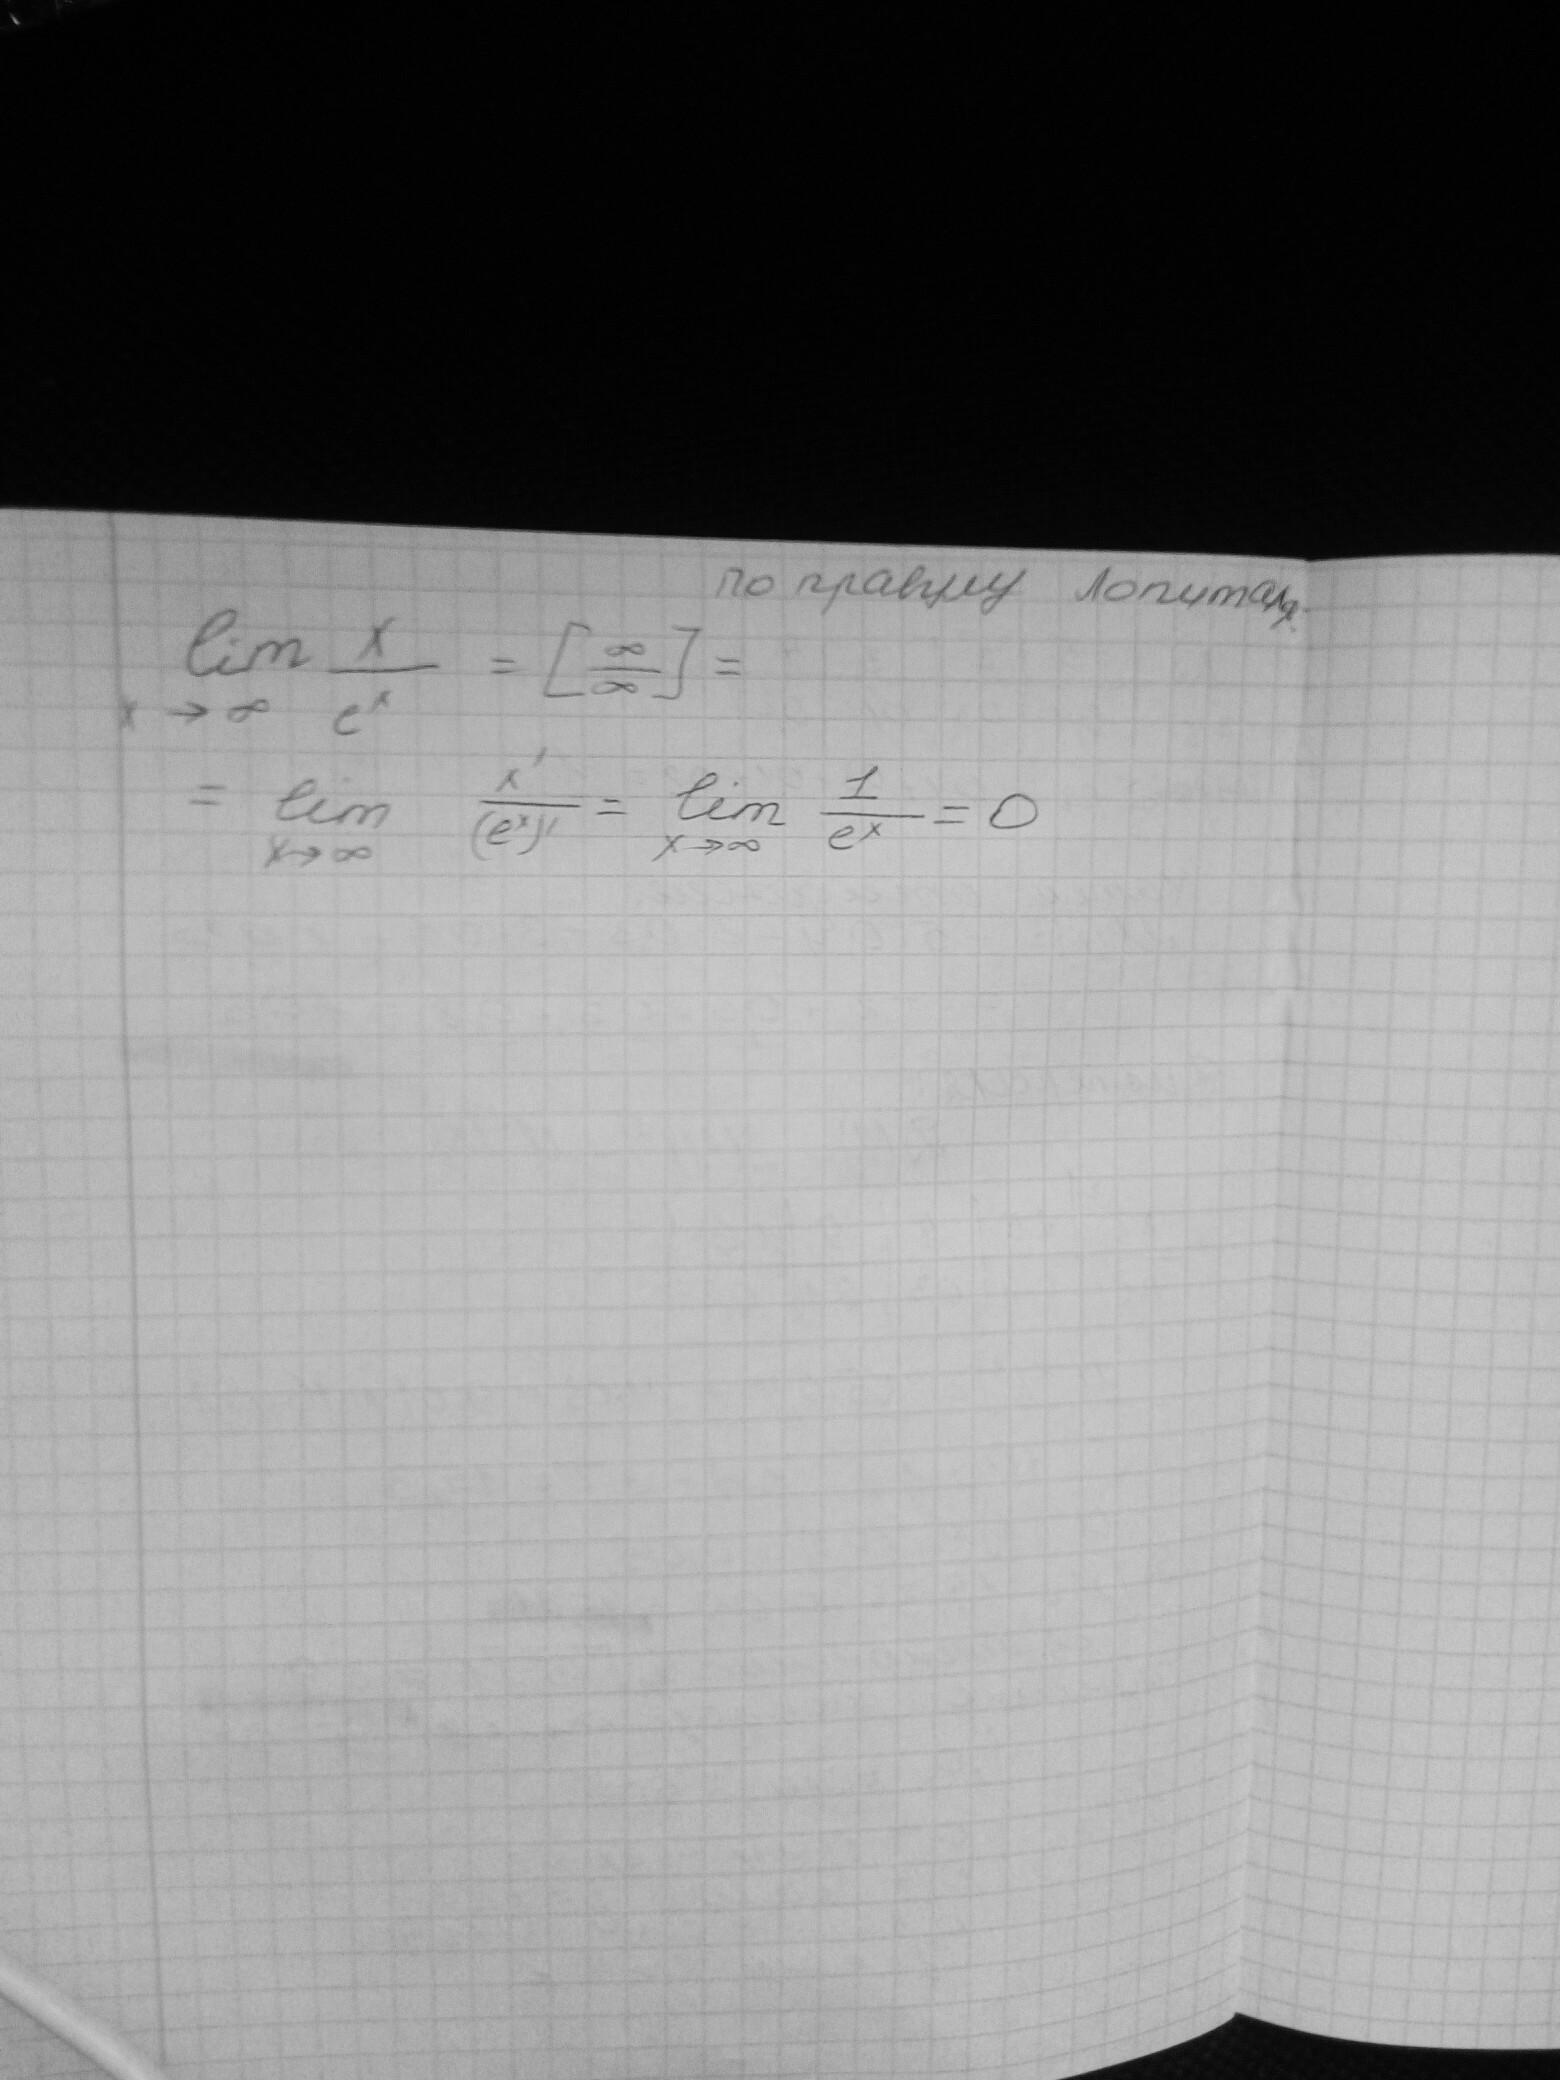 по правилу Лопиталя.
lim x/eˣ = [∞/∞] =
x → ∞
= lim x'/(eˣ)' = lim 1/eˣ = 0
x→∞ x→∞